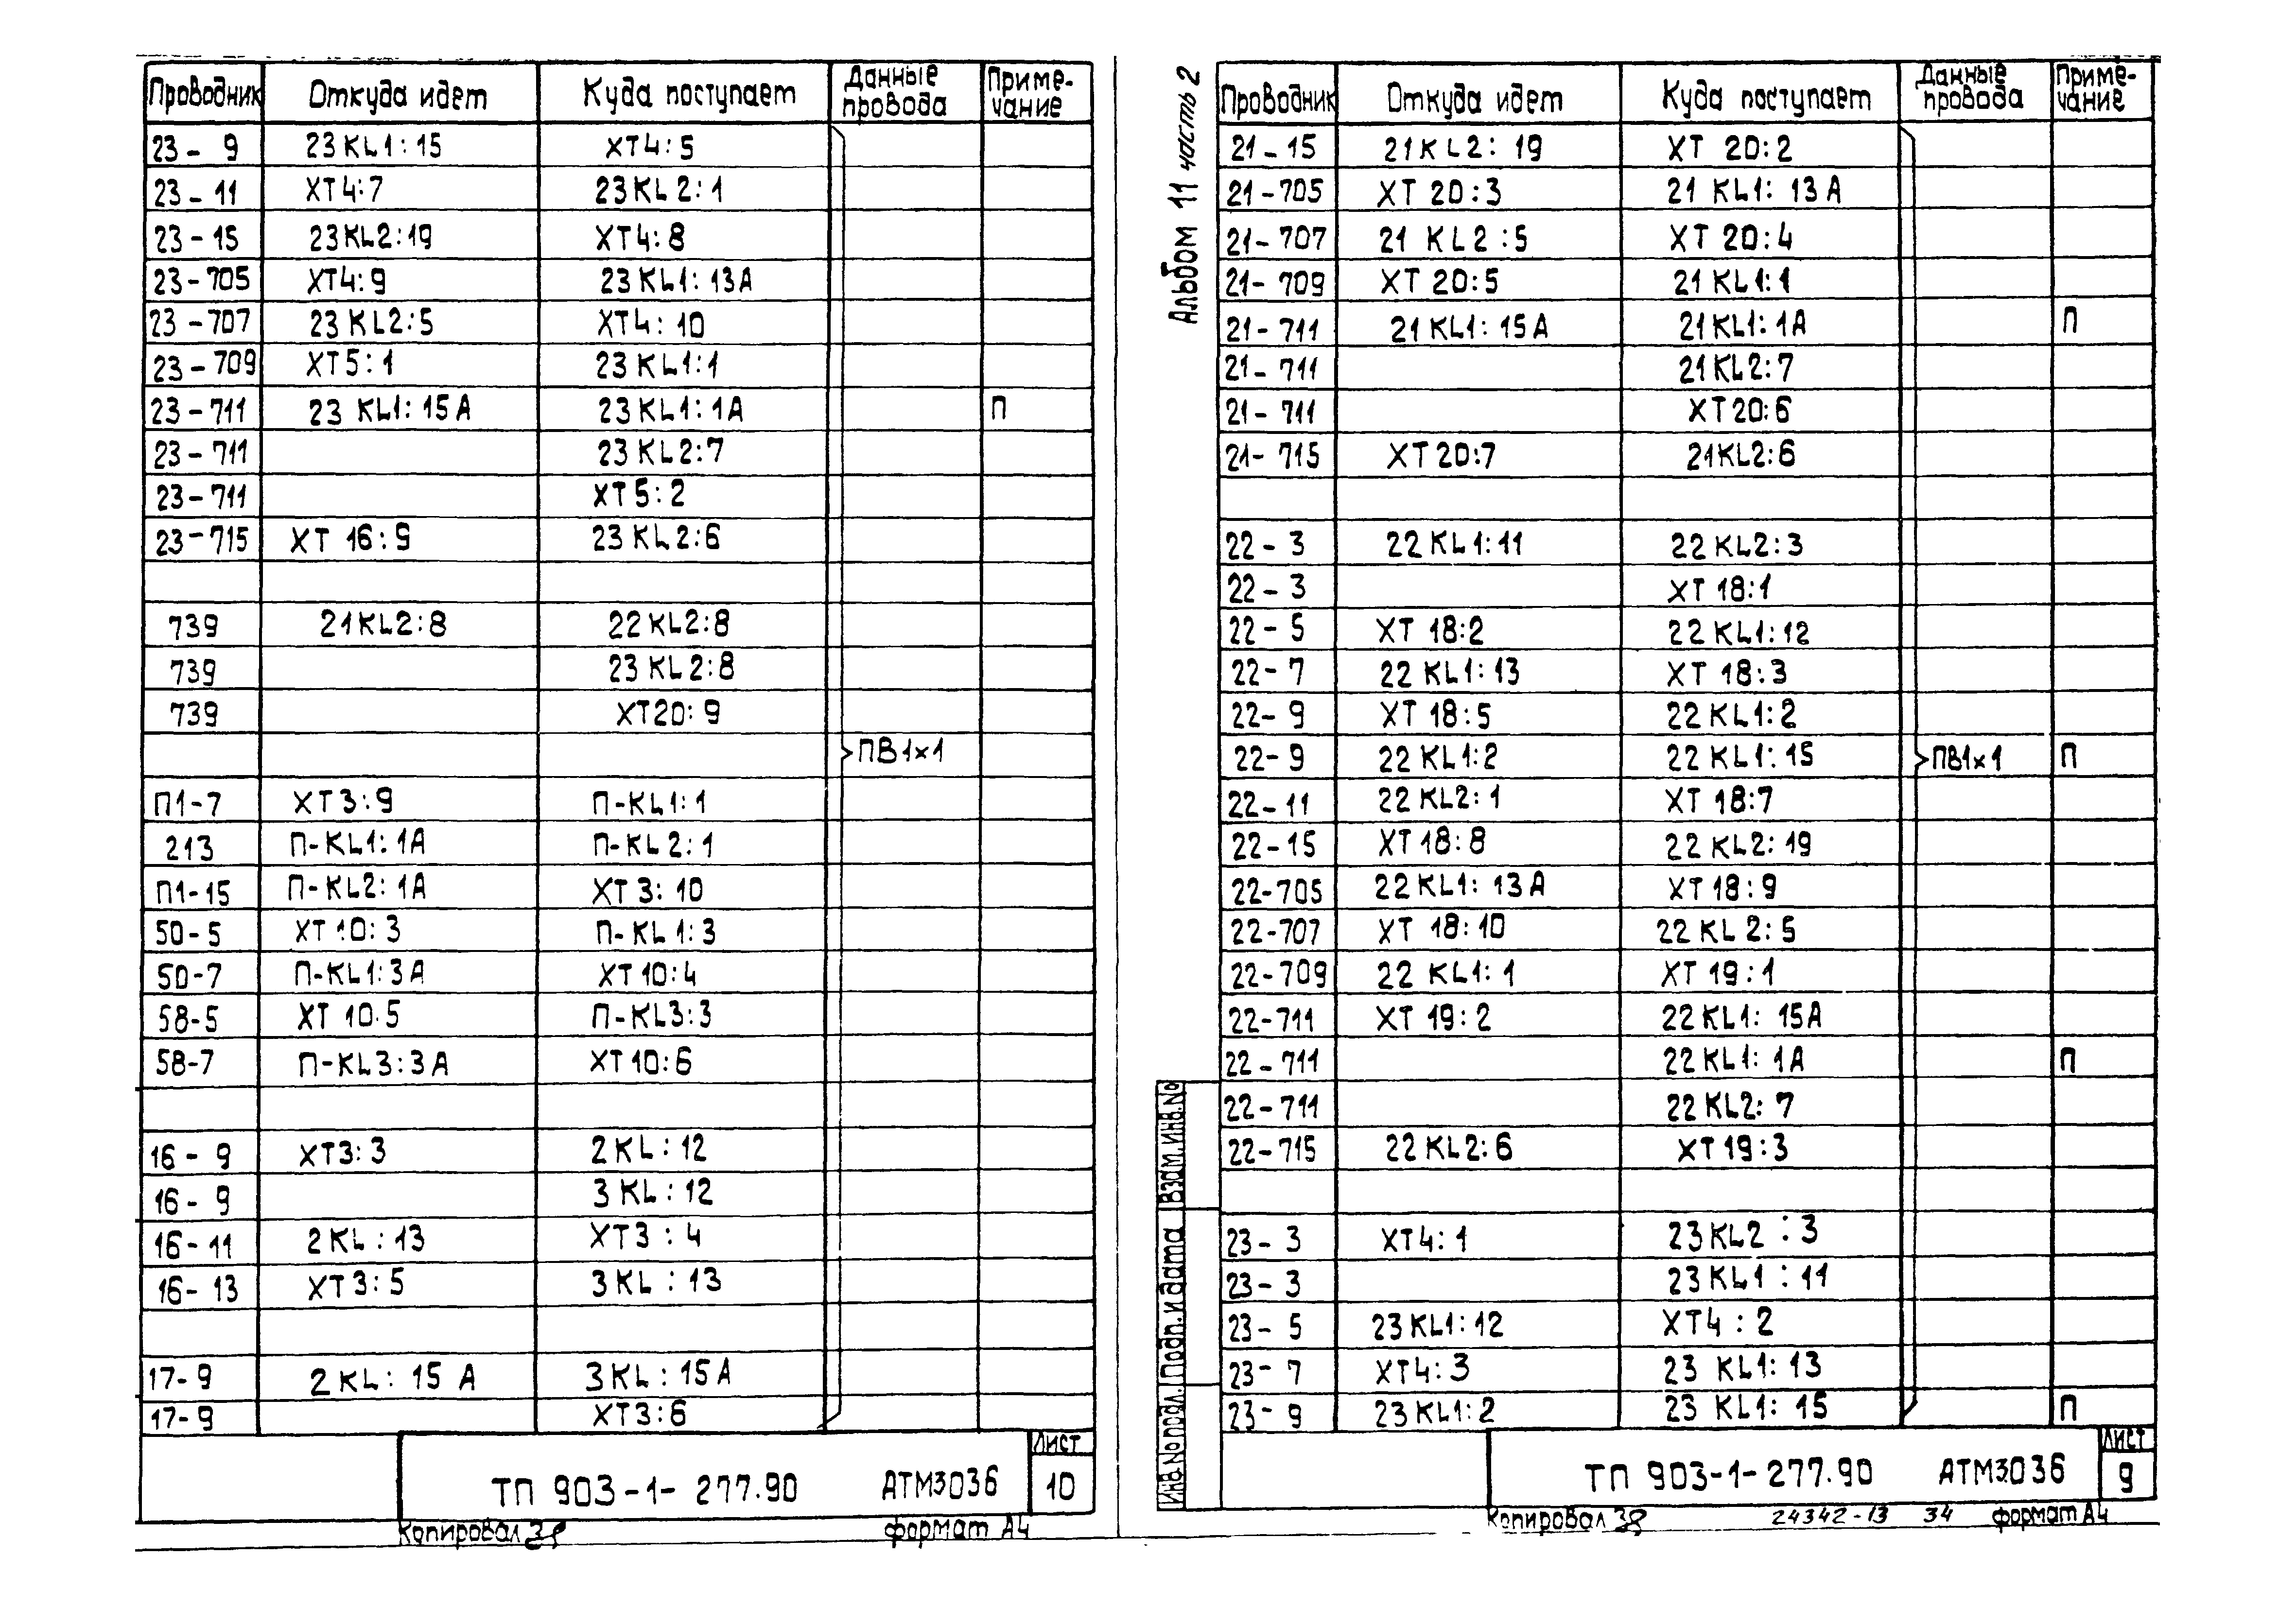 Проводник Откуда идет Куда поступает Данные провода Приме-чание
23 - 9 23KL1:15 XT4:5
23 - 11 XT4:7 23KL2:1
23 - 15 23KL2:19 XT4:8
23-705 XT4:9 23KL1:13A
23-707 23KL2:5 XT4:10
23-709 XT5:1 23KL1:1
23-711 23KL1:15A 23KL1:1A П
23-711 23KL2:7
23-711 XT5:2
23-715 XT 16:9 23KL2:6
739 21KL2:8 22KL2:8
739 23KL2:8
739 XT20:9
ПВ1х1
П1-7 XT3:9 П-KL1:1
213 П-KL1:1A П-KL2:1
П1-15 П-KL2:1A XT3:10
50-5 XT10:3 П-KL1:3
50-7 П-KL1:3A XT10:4
58-5 XT 10.5 П-KL3:3
58-7 П-KL3:3A XT10:6
16 - 9 XT3:3 2KL:12
16 - 9 3KL:12
16 - 11 2KL:13 XT3:4
16 - 13 XT3:5 3KL:13
17-9 2KL:15A 3KL:15A
17-9 XT3:6
ТП 903-1-277.90 АТМ3036 Лист 10
Копировал формат А4
Альбом 11 часть 2
Проводник Откуда идет Куда поступает Данные провода Приме-чание
21-15 21KL2:19 XT 20:2
21-705 XT 20:3 21KL1:13A
21-707 21KL2:5 XT 20:4
21-709 XT 20:5 21KL1:1
21-711 21KL1:15A 21KL1:1A П
21-711 21KL2:7
21-711 XT20:6
21-715 XT20:7 21KL2:6
22 - 3 22KL1:11 22KL2:3
22 - 3 XT 18:1
22 - 5 XT 18:2 22KL1:12
22 - 7 22KL1:13 XT 18:3
22 - 9 XT 18:5 22KL1:2
22 - 9 22KL1:2 22KL1:15 ПВ1х1 П
22-11 22KL2:1 XT 18:7
22-15 XT 18:8 22KL2:19
22-705 22KL1:13A XT 18:9
22-707 XT 18:10 22KL2:5
22-709 22KL1:1 XT 19:1
22-711 XT 19:2 22KL1:15A
22-711 22KL1:1A П
22-711 22KL2:7
22-715 22KL2:6 XT19:3
23 - 3 XT4:1 23KL2:3
23 - 3 23KL1:11
23 - 5 23KL1:12 XT4:2
23 - 7 XT4:3 23KL1:13
23 - 9 23KL1:2 23KL1:15 П
Взам.инв.№
Подп. и дата
Инв.№подл.
ТП 903-1-277.90 АТМ3036 Лист 9
Копировал 24342-13 34 формат А4